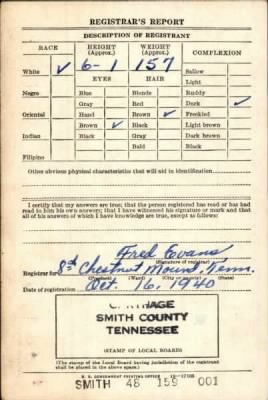 REGISTRAR'S REPORT
DESCRIPTION OF REGISTRANT
RACE HEIGHT (Approx.) WEIGHT (Approx.) COMPLEXION
White ✓ 6-1 157 Sallow
EYES HAIR Light
Negro Blue Blonde Ruddy
Gray Red Dark ✓
Oriental Hazel Brown ✓ Freckled
Brown ✓ Black Light brown
Indian Black Gray Dark brown
Bald Black
Filipino
Other obvious physical characteristics that will aid in identification
I certify that my answers are true; that the person registered has read or has had
read to him his own answers; that I have witnessed his signature or mark and that
all of his answers of which I have knowledge are true, except as follows:
Fred Evans
(Signature of registrar)
Registrar for 8th Chestnut Mound, Tenn.
(Precinct) (Ward) (City or county) (State)
Date of registration Oct. 16, 1940
CARTHAGE
SMITH COUNTY
TENNESSEE
(STAMP OF LOCAL BOARD)
(The stamp of the Local Board having jurisdiction of the registrant
shall be placed in the above space.)
U. S. GOVERNMENT PRINTING OFFICE
SMITH 46 159 001